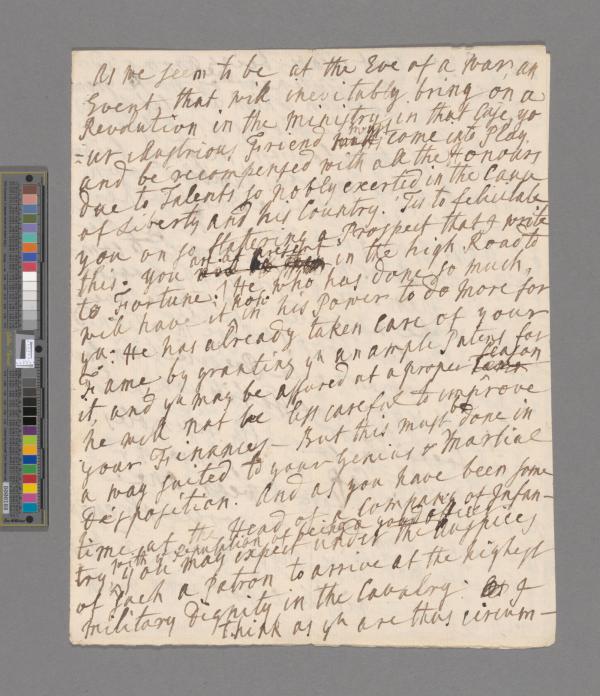 As we seem to be at the Eve of a war, an
Event, that will inevitably bring on a
Revolution in the ministry, in that Case, yo
=ur illustrious Friend must come into Play
and be recompensed with all the Honours
due to Talents so nobly exerted in the Cause
of Liberty and his Country. Tis to felicitate
you on so flatering a Prospect that I write
this. you are at present in the high Road to
to Fortune: He who has done so much,
will have it now in his Power to do more for
yu: He has already taken care of your
Fame, by granting yu an ample Patent for
it, and yu may be assured at a proper season
he will not be less careful to improve
your Finances — But this must be done in
a way suited to your Genius & Martial
Desposition. And as you have been some
time at the Head of a Company of Infan-
try with ye reputation of being a good officer
you may expect under the Auspices
of such a Patron to arrive at the highest
military Dignity in the Cavalry. I
think as yu are thus circum-